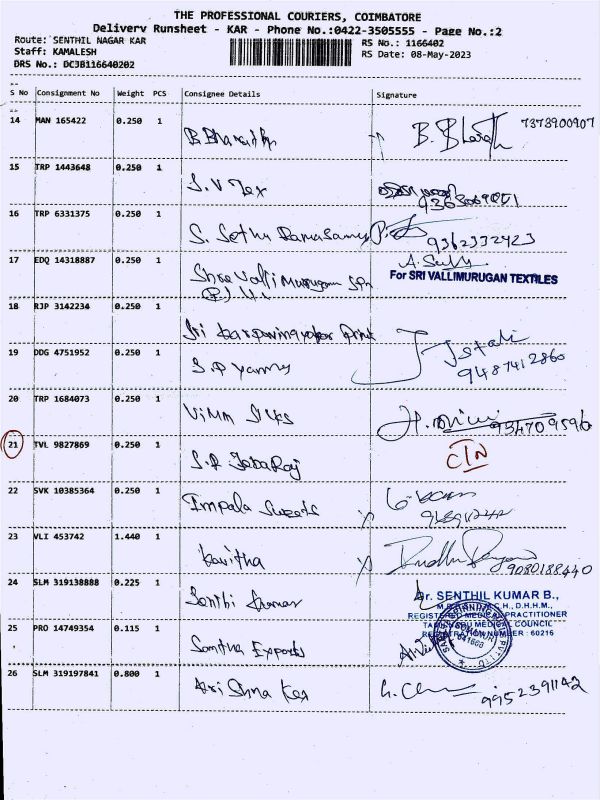 THE PROFESSIONAL COURIERS, COIMBATORE
Delivery Runsheet - KAR - Phone No.:0422-3505555 - Page No.:2
Route: SENTHIL NAGAR KAR
RS No.: 1166402
Staff: KAMALESH
RS Date: 08-May-2023
DRS No.: DC3B116640202
S No Consignment No Weight PCS Consignee Details Signature
14 MAN 165422 0.250 1 B. Bharath 7378900907
15 TRP 1443648 0.250 1 S.V Tex
16 TRP 6331375 0.250 1 S. Sethu Ramasamy 9362332423
17 EDQ 14318887 0.250 1 Shree Valli Murugan
For SRI VALLIMURUGAN TEXTILES
18 RJP 3142234 0.250 1 Sri Print
19 DDG 4751952 0.250 1 S.P Yarns 9487412860
20 TRP 1684073 0.250 1
21 TVL 9827869 0.250 1 S.P JebaRaj
22 SVK 10385364 0.250 1 Impala Sweets
23 VLI 453742 1.440 1 Kavitha 9080188440
24 SLM 319138888 0.225 1 Senthil Kumar
Dr. SENTHIL KUMAR B.,
REGISTERED MEDICAL PRACTITIONER
TAMILNADU MEDICAL COUNCIL
REGISTRATION NUMBER : 60216
25 PRO 14749354 0.115 1 Exports
26 SLM 319197841 0.800 1 9952391142